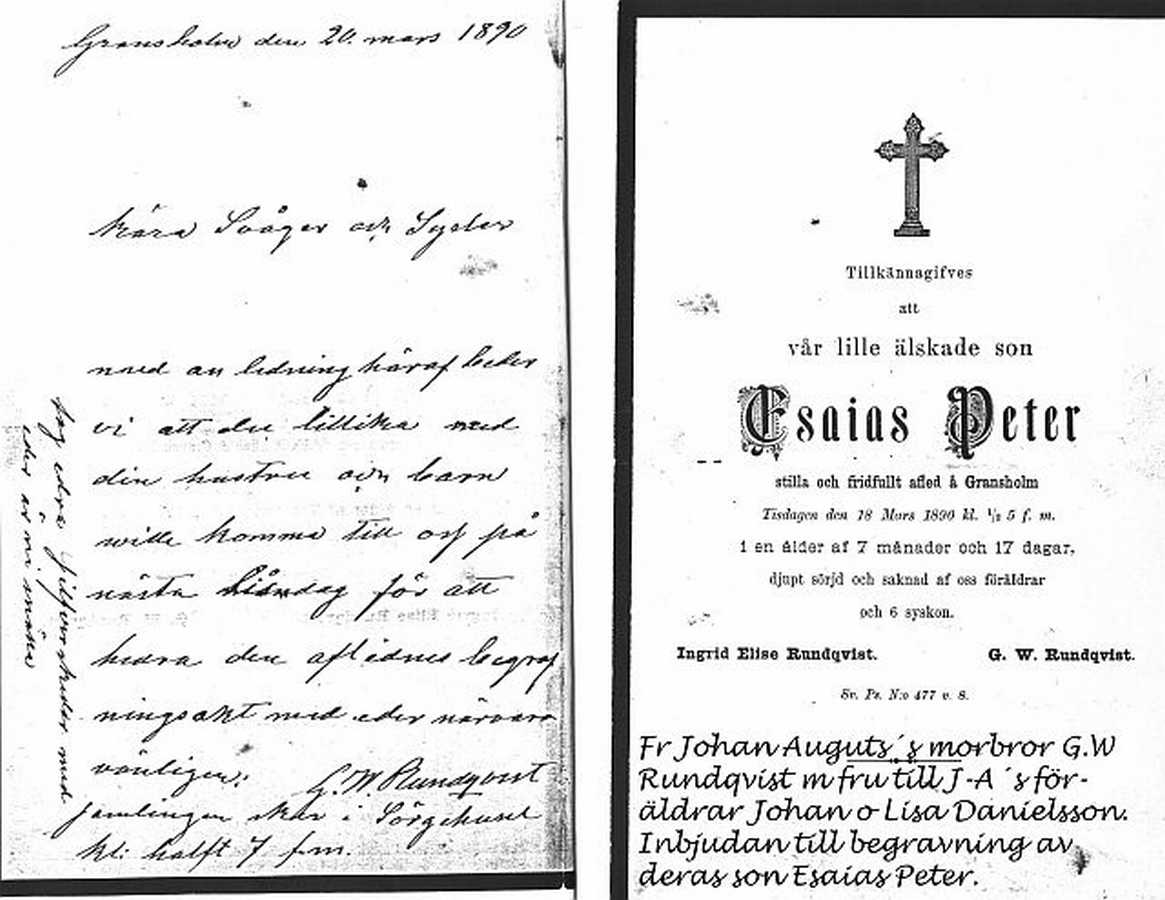 Gransholm den 20. mars 1890
kära Svåger och Syster
med an ledning häraf beder
vi att du tillika med
din hustru och barn
wille komma till oss på
nästa för att
hedra den aflidnes begraf
ningsakt med eder närvaro
vänligen: G. W Rundqvist
samlingen sker i Sörgehuset
kl: halft 7 f.m.
med
eder
Tillkännagifves
att
vår lille älskade son
Esaias Peter
stilla och fridfullt afled å Gransholm
Tisdagen den 18 Mars 1890 kl. ½ 5 f. m.
i en ålder af 7 månader och 17 dagar,
djupt sörjd och saknad af oss föräldrar
och 6 syskon.
Ingrid Elise Rundqvist. G. W. Rundqvist.
Sv. Ps. N:o 477 v. 8.
Fr Johan Auguts´s morbror G.W
Rundqvist m fru till J-A´s för-
äldrar Johan o Lisa Danielsson.
Inbjudan till begravning av
deras son Esaias Peter.